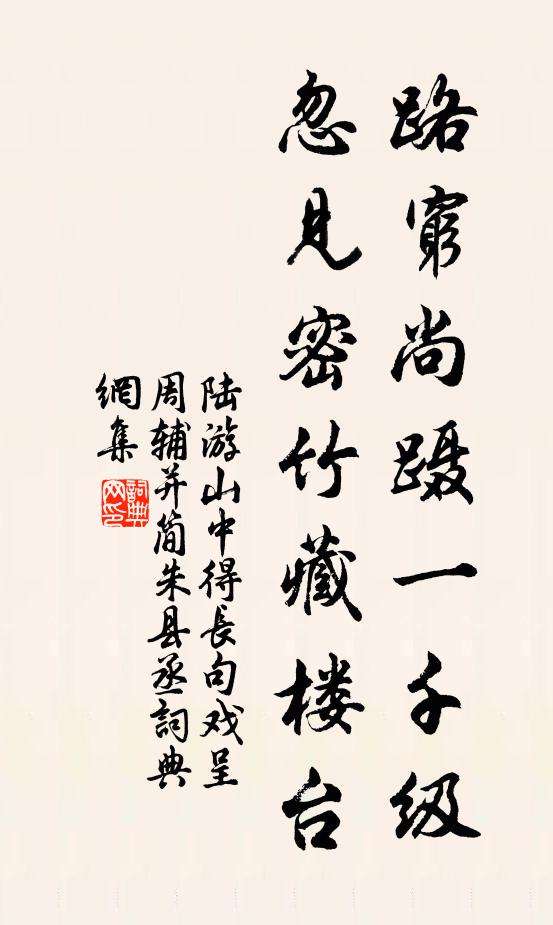 路窮尚蹑一千级
忽见密竹藏楼台
陆游山中得長句戏呈
周辅并简朱县丞詞典
網集
詞典
网印